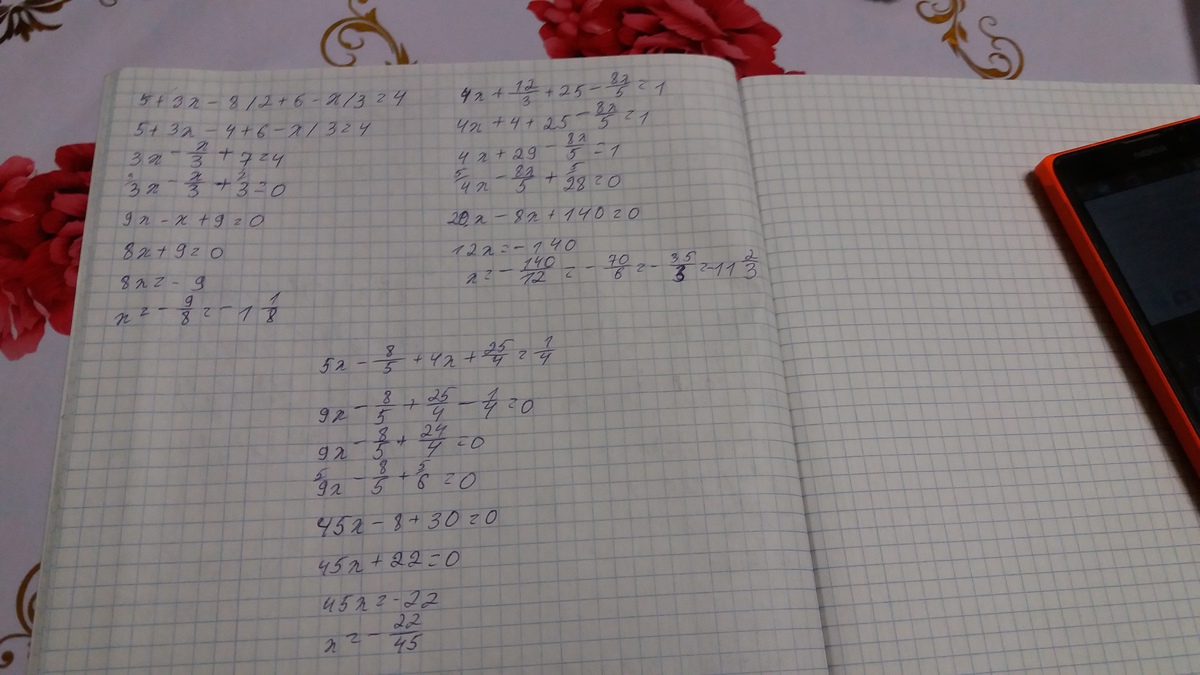 5+3x-8/2+6-x/3=4
5+3x-4+6-x/3=4
3x-x/3+7=4
3x-x/3+3=0
9x-x+9=0
8x+9=0
8x=-9
x=-9/8=-1 1/8
4x+12/3+25-8x/5=1
4x+4+25-8x/5=1
4x+29-8x/5=1
4x-8x/5+28=0
20x-8x+140=0
12x=-140
x=-140/12=-70/6=-35/3=-11 2/3
5x-8/5+4x+25/4=1/4
9x-8/5+25/4-1/4=0
9x-8/5+24/4=0
9x-8/5+6=0
45x-8+30=0
45x+22=0
45x=-22
x=-22/45
NOKIA